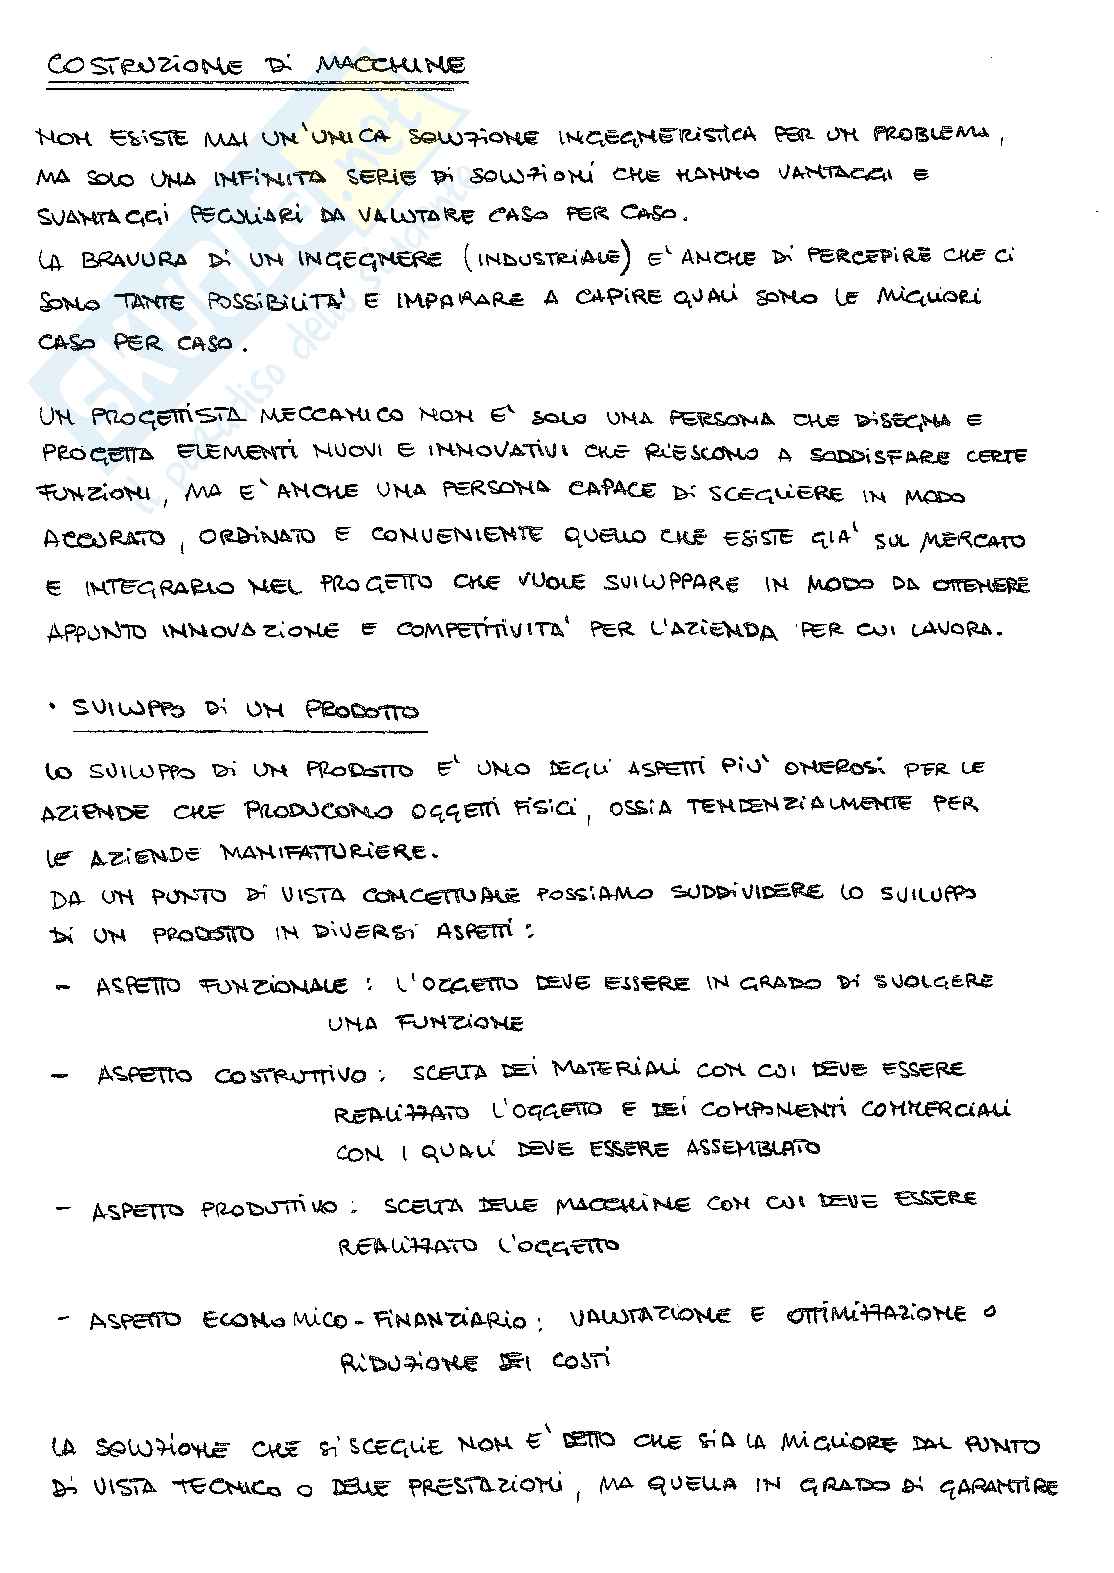 COSTRUZIONE DI MACCHINE
NON ESISTE MAI UN'UNICA SOLUZIONE INGEGNERISTICA PER UN PROBLEMA,
MA SOLO UNA INFINITA SERIE DI SOLUZIONI CHE HANNO VANTAGGI E
SVANTAGGI PECULIARI DA VALUTARE CASO PER CASO.
LA BRAVURA DI UN INGEGNERE (INDUSTRIALE) E' ANCHE DI PERCEPIRE CHE CI
SONO TANTE POSSIBILITA' E IMPARARE A CAPIRE QUALI SONO LE MIGLIORI
CASO PER CASO.
UN PROGETTISTA MECCANICO NON E' SOLO UNA PERSONA CHE DISEGNA E
PROGETTA ELEMENTI NUOVI E INNOVATIVI CHE RIESCONO A SODDISFARE CERTE
FUNZIONI, MA E' ANCHE UNA PERSONA CAPACE DI SCEGLIERE IN MODO
ACCURATO, ORDINATO E CONVENIENTE QUELLO CHE ESISTE GIA' SUL MERCATO
E INTEGRARLO NEL PROGETTO CHE VUOLE SVILUPPARE IN MODO DA OTTENERE
APPUNTO INNOVAZIONE E COMPETITIVITA' PER L'AZIENDA PER CUI LAVORA.
• SVILUPPO DI UN PRODOTTO
LO SVILUPPO DI UN PRODOTTO E' UNO DEGLI ASPETTI PIU' ONEROSI PER LE
AZIENDE CHE PRODUCONO OGGETTI FISICI, OSSIA TENDENZIALMENTE PER
LE AZIENDE MANIFATTURIERE.
DA UN PUNTO DI VISTA CONCETTUALE POSSIAMO SUDDIVIDERE LO SVILUPPO
DI UN PRODOTTO IN DIVERSI ASPETTI:
- ASPETTO FUNZIONALE: L'OGGETTO DEVE ESSERE IN GRADO DI SVOLGERE
UNA FUNZIONE
- ASPETTO COSTRUTTIVO: SCELTA DEI MATERIALI CON CUI DEVE ESSERE
REALIZZATO L'OGGETTO E DEI COMPONENTI COMMERCIALI
CON I QUALI DEVE ESSERE ASSEMBLATO
- ASPETTO PRODUTTIVO: SCELTA DELLE MACCHINE CON CUI DEVE ESSERE
REALIZZATO L'OGGETTO
- ASPETTO ECONOMICO-FINANZIARIO: VALUTAZIONE E OTTIMIZZAZIONE O
RIDUZIONE DEI COSTI
LA SOLUZIONE CHE SI SCEGLIE NON E' DETTO CHE SIA LA MIGLIORE DAL PUNTO
DI VISTA TECNICO O DELLE PRESTAZIONI, MA QUELLA IN GRADO DI GARANTIRE